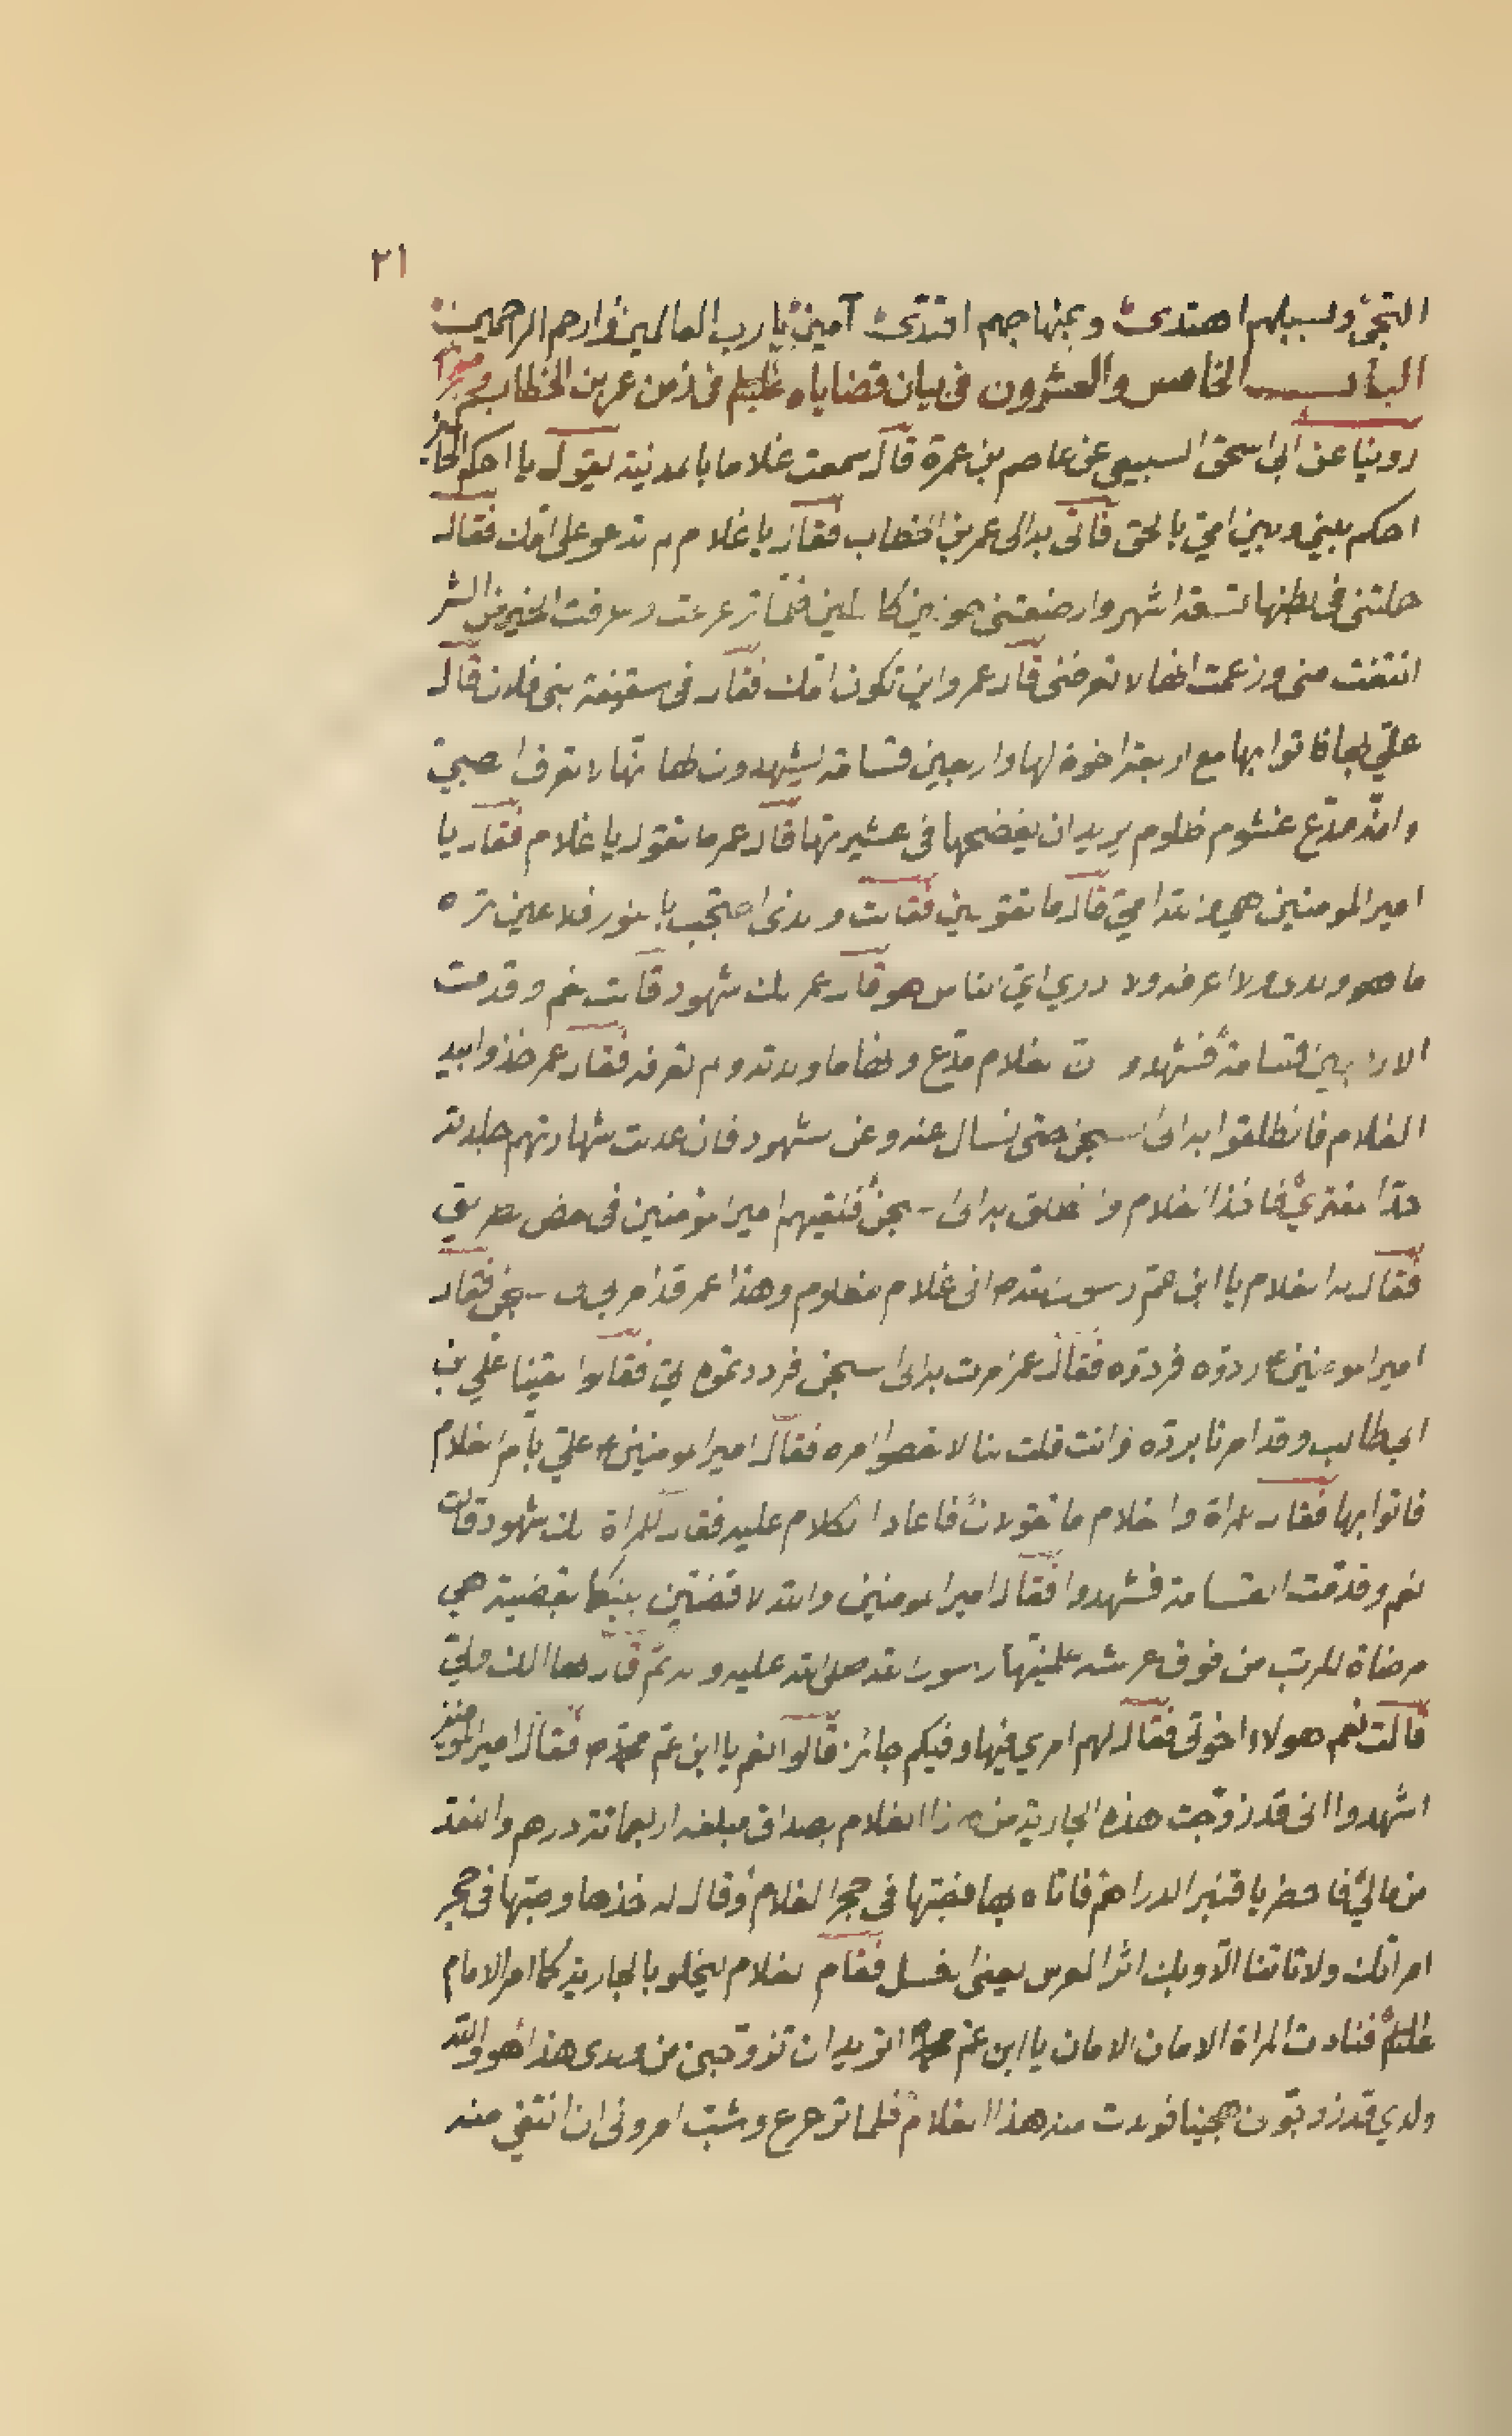 ٢١
التجئ ولسبيلهم اهتدى وبمنهاجهم اقتدى آمين يا رب العالمين وارحم الراحمين
الباب الخامس والعشرون فى بيان قضاياه عليلم فى زمن عمر بن الخطاب
روينا عن ابى اسحق السبيعى عن عاصم بن عمرة قال سمعت غلاما بالمدينة يقول يا احكم الحاكمين
احكم بينى وبين امي بالحق فاتى به الى عمر بن الخطاب فقال يا غلام لم تدعو على امك فقال
حملتنى فى بطنها تسعة اشهر وارضعتنى حولين كاملين فلما ترعرعت وعرفت الخير من الشر
انتفت منى وزعمت انها لا تعرفنى قال عمر واين تكون امك فقال فى سقيفة بنى فلان قال
عليّ بها فاتوا بها مع اربعة اخوة لها واربعين قسامة يشهدون لها انها لا تعرف الصبيّ
وانه مدّع غشوم ظلوم يريد ان يفضحها فى عشيرتها قال عمر ما تقول يا غلام فقال يا
امير المومنين هي والله امي قال ما تقولين فقالت ولذى احتجب بالنور فلا عين تراه
ما هو ولدى ولا اعرفه ولا ادري ايّ الناس هو قال عمر لك شهود قالت نعم وقدمت
الاربعين قسامة فشهدوا ان الغلام مدّع وانها ما ولدته ولم تعرفه فقال عمر خذوا بيد
الغلام فانطلقوا به الى السجن حتى نسال عنه وعن شهود فان عدلت شهادتهم جلدته
حدّ المفتري فاخذ الغلام وانطلق به الى السجن فلقيهم امير المؤمنين فى بعض الطريق
فقال له الغلام يا ابن عمّ رسول الله صلع انى غلام مظلوم وهذا عمر قد امر بى الى السجن فقال
امير المومنين ع ردوه فردوه فقال عمر امرت به الى السجن فرددتموه اليّ فقالوا لقينا علي بن
ابيطالب وقد امرنا برده وانت قلت لنا لا تعصوا امره فقال امير المومنين ع عليّ بأم الغلام
فاتوا بها فقال للمراة والغلام ما تقولان فاعادا الكلام عليه فقال للمراة لك شهود قالت
نعم وقدمت القسامة فشهدوا فقال امير المومنين والله لاقضين بينكما بقضية هي
مرضاة للرب من فوق عرشه علمنيها رسول الله صلى الله عليه وسلم ثم قال لها الك وليّ
قالت نعم هولاء اخوتى فقال لهم امري فيها وفيكم جائز قالوا نعم يا ابن عم محمد صلع فقال امير المومنين
اشهدوا انى قد زوجت هذه الجارية من هذا الغلام بصداق مبلغه اربعمائة درهم والنقد
من مالى فاحضر يا قنبر الدراهم فاتاه بها فصبّها فى حجر الغلام وقال له خذها وصبّها فى حجر
امراتك ولا تاتنا الّا وبك اثر العرس يعنى الغسل فقام الغلام ليخلو بالجارية كما امر الامام
عليلم فنادت المراة الامان الامان يا ابن عم محمد اتريد ان تزوجنى من ولدى هذا هو والله
ولدي قد زوجون هجينا فولدت منه هذا الغلام فلما ترعرع وشبّ امرونى ان انتفى منه